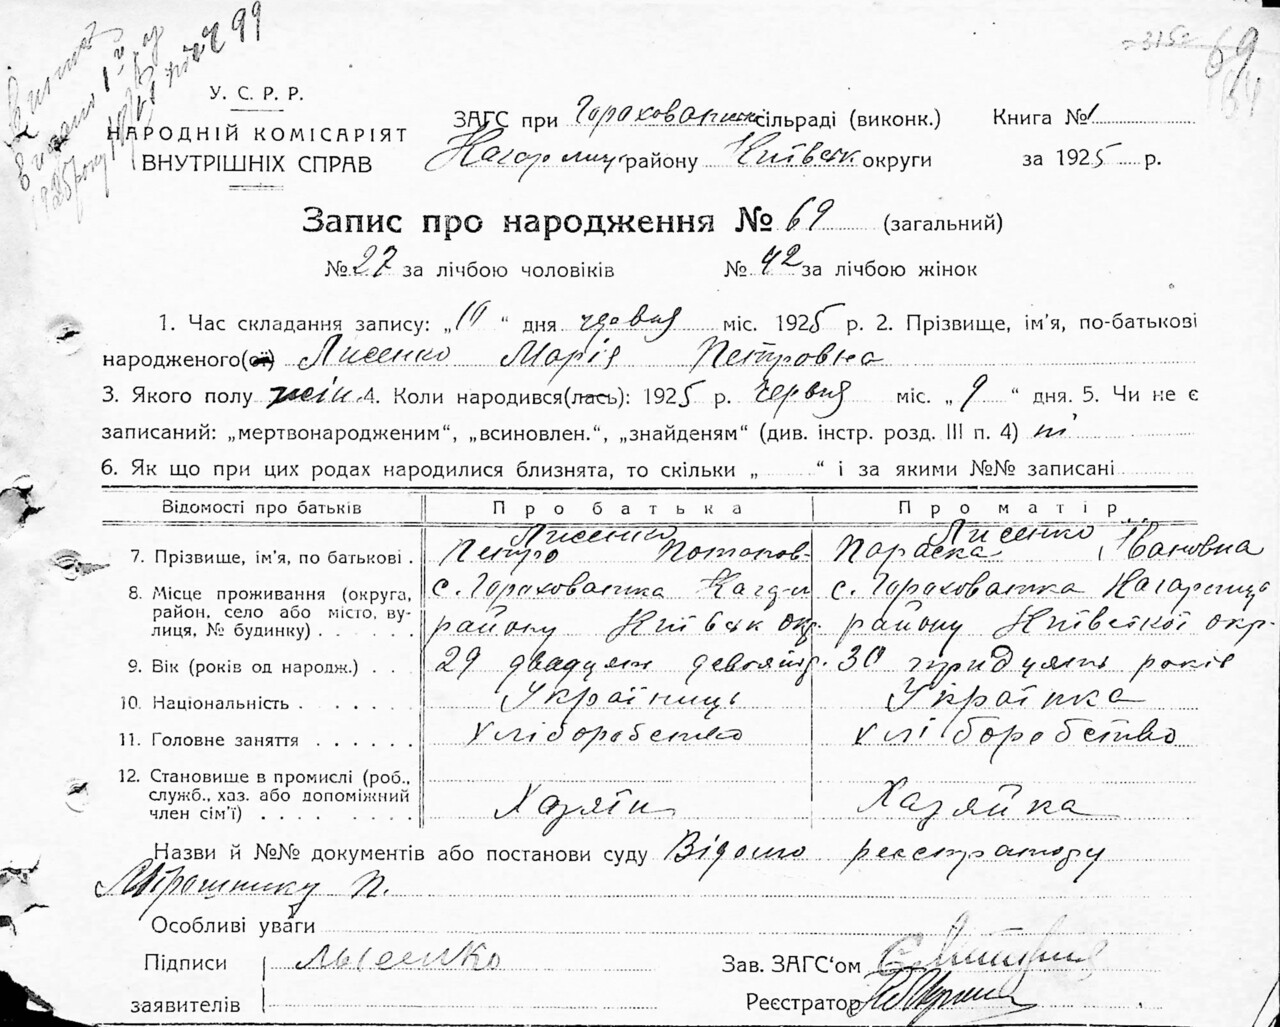 69
У. С. Р. Р.
НАРОДНІЙ КОМІСАРІЯТ
ВНУТРІШНІХ СПРАВ
ЗАГС при сільраді (виконк.) Книга № 1
району Київськ округи за 1925 р.
Запис про народження № 69 (загальний)
№ 27 за лічбою чоловіків № 42 за лічбою жінок
1. Час складання запису: „10“ дня міс. 1925 р. 2. Прізвище, ім'я, по-батькові
народженого(ої) Лисенко Марія Петровна
3. Якого полу жін. 4. Коли народився(лась): 1925 р. червня міс. „9“ дня. 5. Чи не є
записаний: „мертвонародженим“, „всиновлен.“, „знайденям“ (див. інстр. розд. III п. 4) ні
6. Як що при цих родах народилися близнята, то скільки „ “ і за якими №№ записані
Відомості про батьків Про батька Про матір
Лисенко Лисенко
7. Прізвище, ім'я, по батькові . Петро Потапов- Параска Івановна
8. Місце проживання (округа, с. Гороховатка с. Гороховатка
район, село або місто, ву-
лиця, № будинку) . . . . . . району Київськ окр. району Київської окр.
9. Вік (років од народж.) . . 29 двадцять девять 30 тридцять років
10. Національність . . . . . . Українець Українка
11. Головне заняття . . . . . . хліборобство хліборобство
12. Становище в промислі (роб.,
служб., хаз. або допоміжний
член сім'ї) . . . . . . . . Хазяїн Хазяйка
Назви й №№ документів або постанови суду Відомо реєстратору
Мірошнику П.
Особливі уваги
Підписи Лысенко Зав. ЗАГС'ом
заявителів Реєстратор